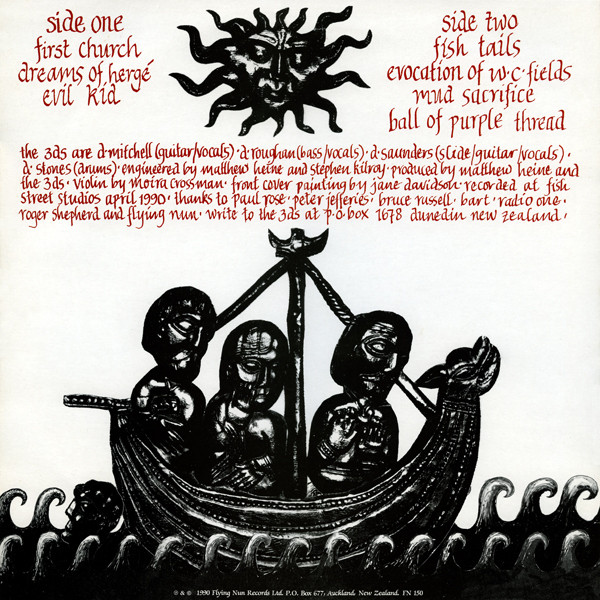 side one
first church
dreams of hergé
evil kid
side two
fish tails
evocation of w·c·fields
mud sacrifice
ball of purple thread
the 3ds are d·mitchell (guitar/vocals)· d·roughan (bass/vocals)· d·saunders (slide/guitar/vocals)·
d·stones (drums)· engineered by matthew heine and stephen kilroy· produced by matthew heine and
the 3ds· violin by moira crossman· front cover painting by jane davidson· recorded at fish
street studios april 1990· thanks to paul rose· peter jefferies· bruce russell· bart· radio one·
roger shepherd and flying nun· write to the 3ds at p·o box 1678 dunedin new zealand·
℗ & © 1990 Flying Nun Records Ltd. P.O. Box 677, Auckland, New Zealand. FN 150